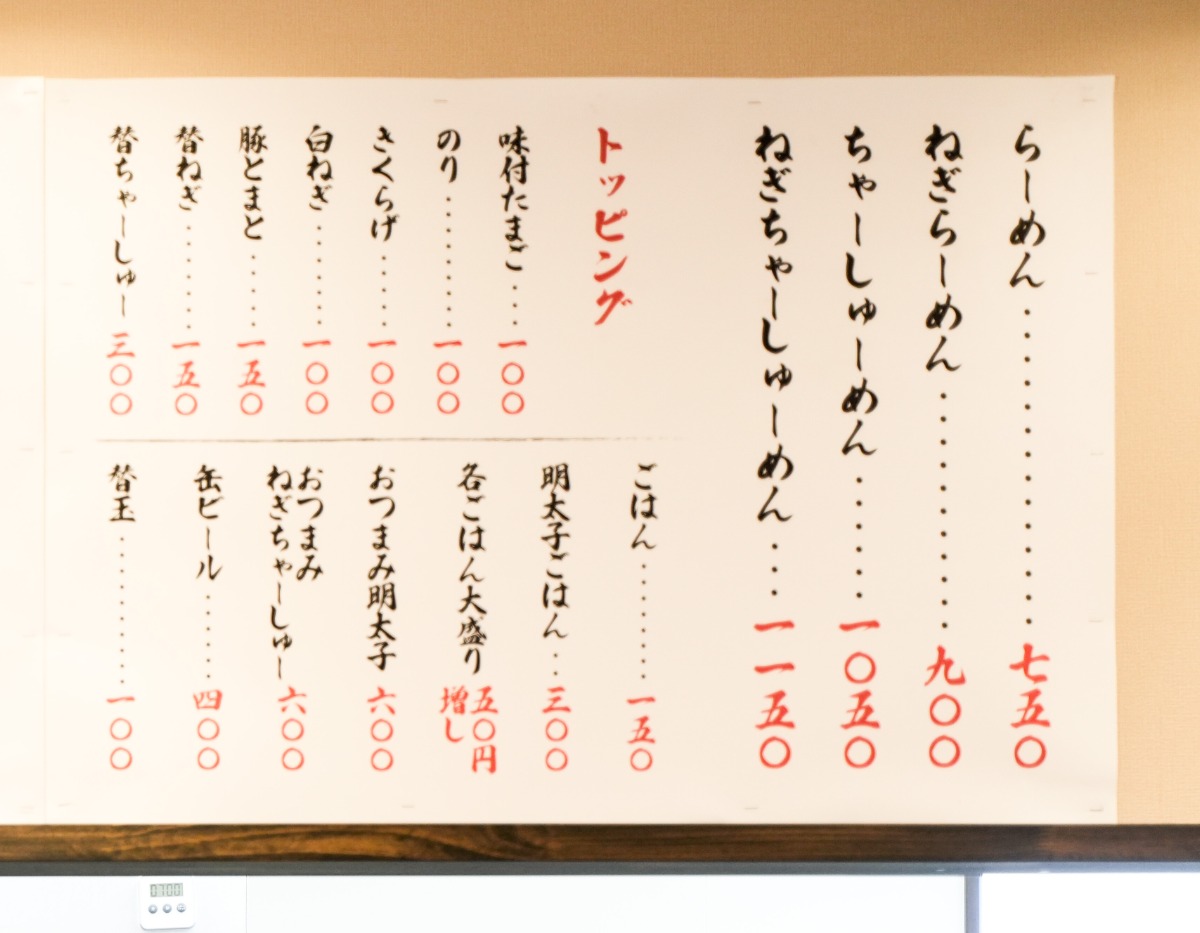 らーめん・・・・・・・・・・・・・七五〇
ねぎらーめん・・・・・・・・・・九〇〇
ちゃーしゅーめん・・・・・・一〇五〇
ねぎちゃーしゅーめん・・・一一五〇
トッピング
味付たまご・・・一〇〇
のり・・・・・・・・一〇〇
きくらげ・・・・・一〇〇
白ねぎ・・・・・・・一〇〇
豚とまと・・・・・一五〇
替ねぎ・・・・・・・一五〇
替ちゃーしゅー 三〇〇
ごはん・・・・・・・・一五〇
明太子ごはん・・・三〇〇
各ごはん大盛り 五〇円
増し
おつまみ明太子 六〇〇
おつまみ
ねぎちゃーしゅー 六〇〇
缶ビール・・・・・・四〇〇
替玉・・・・・・・・・・一〇〇
0700